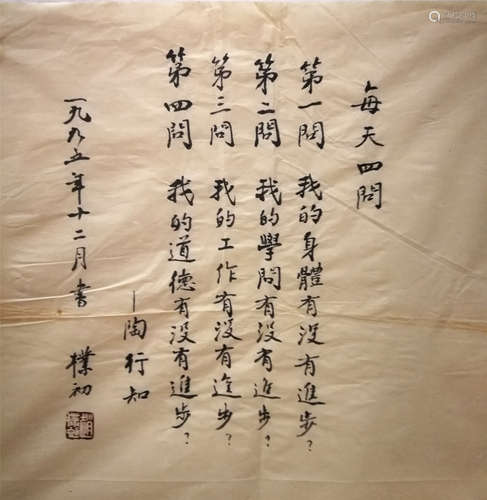 每天四問
第一問 我的身體有没有進步？
第二問 我的學問有没有進步？
第三問 我的工作有没有進步？
第四問 我的道德有没有進步？
—陶行知
一九九五年十二月書 樸初